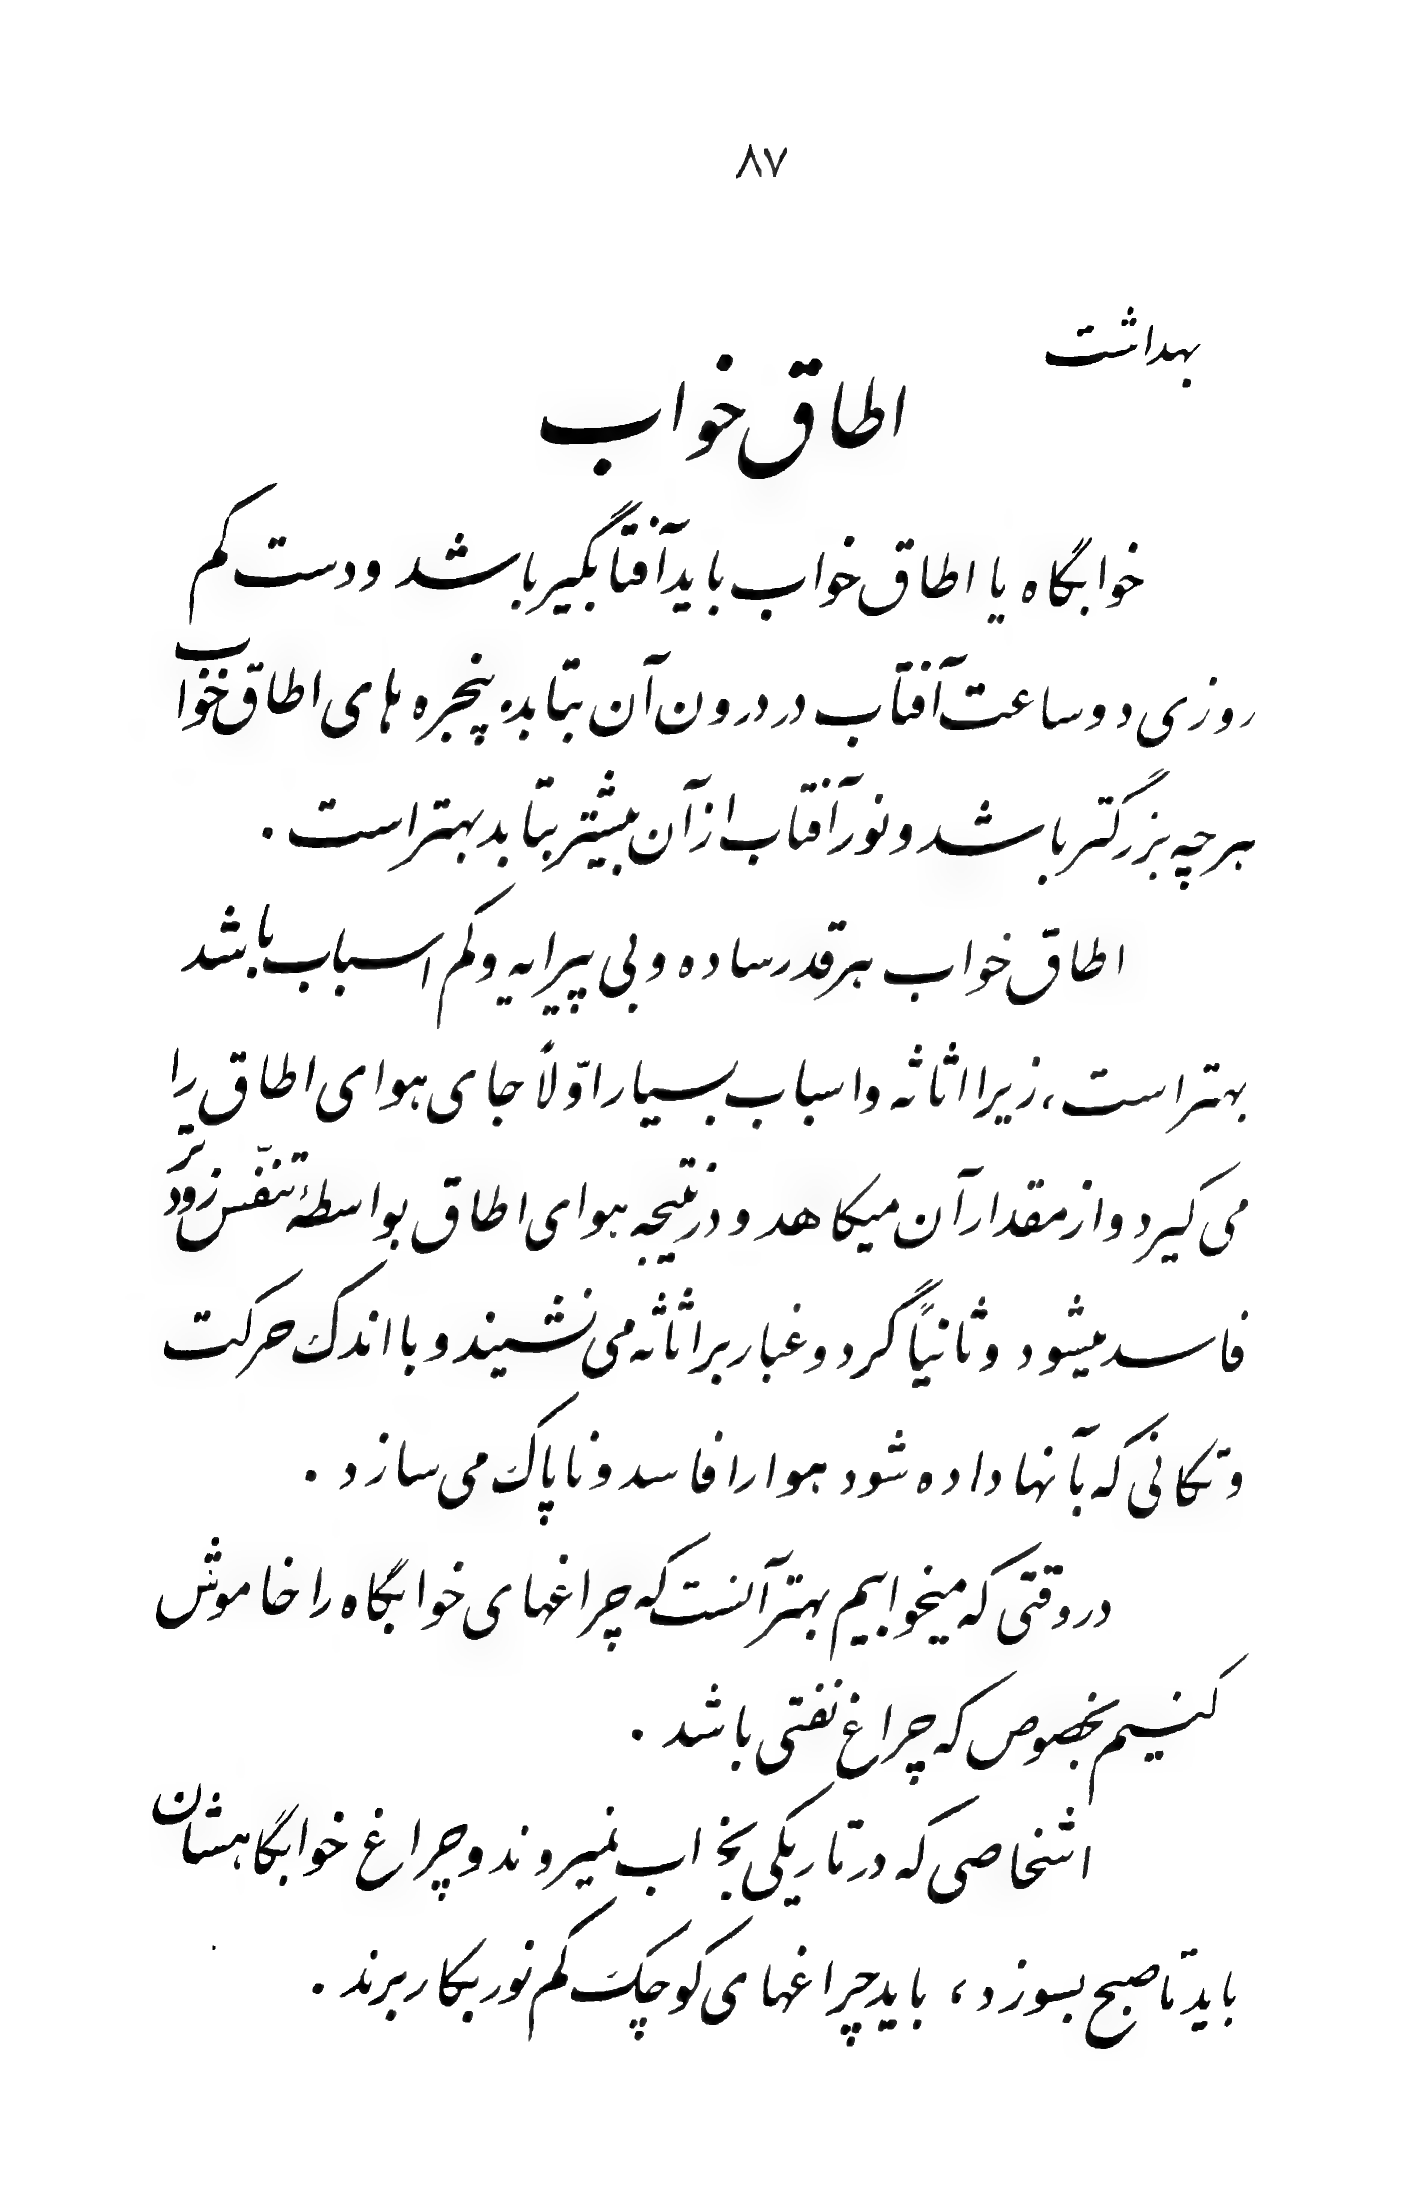 ۸۷
بهداشت
اطاق خواب
خوابگاه یا اطاق خواب باید آفتابگیر باشد و دست کم
روزی دو ساعت آفتاب در درون آن بتابد. پنجره های اطاق خواب
هرچه بزرگتر باشد و نور آفتاب از آن بیشتر بتابد بهتر است .
اطاق خواب هر قدر ساده و بی پیرایه و کم اسباب باشد
بهتر است ، زیرا اثاثه و اسباب بسیار اوّلاً جای هوای اطاق را
می گیرد و از مقدار آن میکاهد و در نتیجه هوای اطاق بواسطهٔ تنفّس زودتر
فاسد میشود و ثانیاً گرد و غبار بر اثاثه می نشیند و با اندک حرکت
و تکانی که بآنها داده شود هوا را فاسد و ناپاک می سازد .
در وقتی که میخوابیم بهتر آنست که چراغهای خوابگاه را خاموش
کنیم بخصوص که چراغ نفتی باشد .
اشخاصی که در تاریکی بخواب نمیروند و چراغ خوابگاهشان
باید تا صبح بسوزد ، باید چراغهای کوچک کم نور بکار برند .